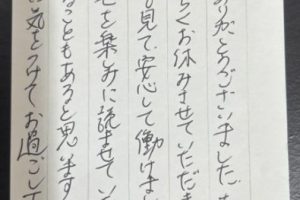 ありがとうございました。
らくお休みさせていただき
見て、安心して働けま
を楽しみに読ませてい
ることもあると思います
気をつけてお過ごして